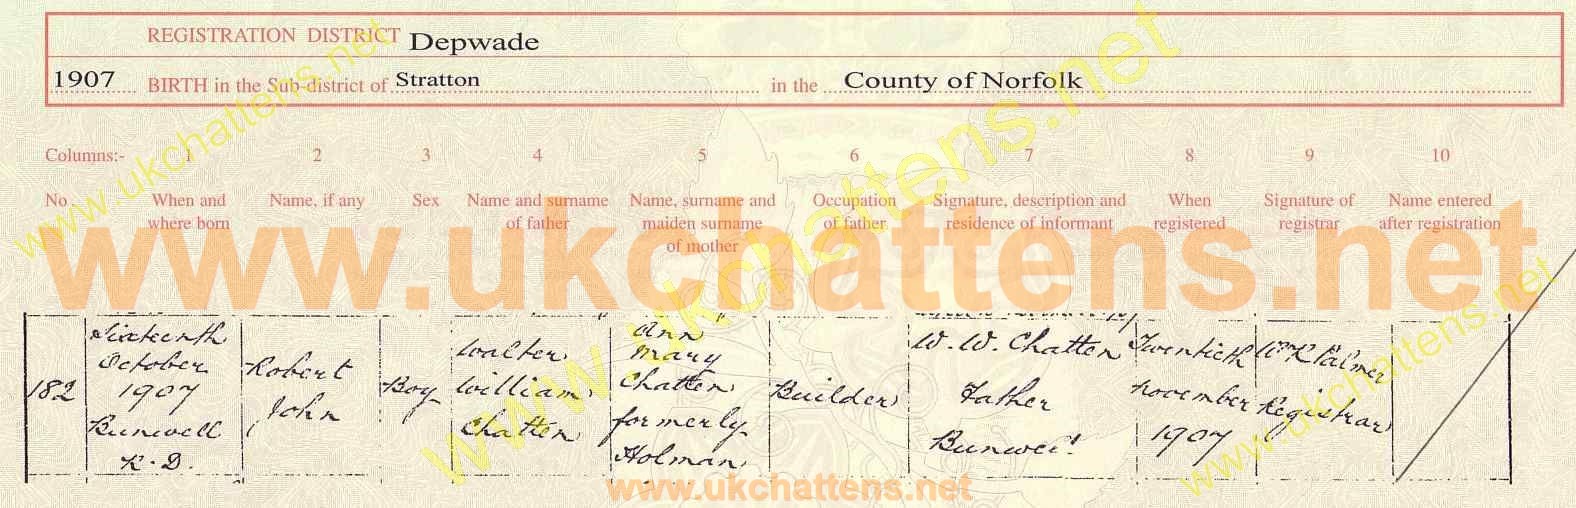 REGISTRATION DISTRICT Depwade
1907 BIRTH in the Sub-district of Stratton in the County of Norfolk
Columns:- 1 2 3 4 5 6 7 8 9 10
No When and where born Name, if any Sex Name and surname of father Name, surname and maiden surname of mother Occupation of father Signature, description and residence of informant When registered Signature of registrar Name entered after registration
www.ukchattens.net
www.ukchattens.net
www.ukchattens.net
182
Sixteenth
October
1907
Bunwell
R.D.
Robert
John
Boy
Walter
William
Chatten
Ann
Mary
Chatten
formerly
Holman
Builder
W. W. Chatten
Father
Bunwell
Twentieth
November
1907
Wm R Palmer
Registrar
www.ukchattens.net
www.ukchattens.net
www.ukchattens.net